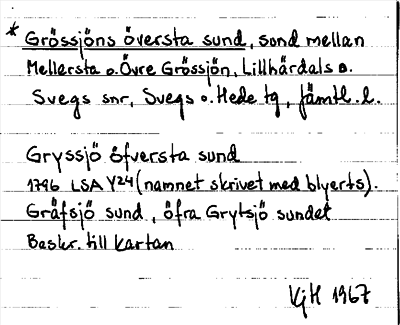 * Grössjöns översta sund, sund mellan
Mellersta o. Övre Grössjön, Lillhärdals o.
Svegs snr, Svegs o. Hede tg, Jämtl. l.
Gryssjö öfversta sund
1796 LSA Y24 (namnet skrivet med blyerts).
Gräfsjö sund, öfra Grytsjö sundet
Beskr. till kartan
KjH 1967